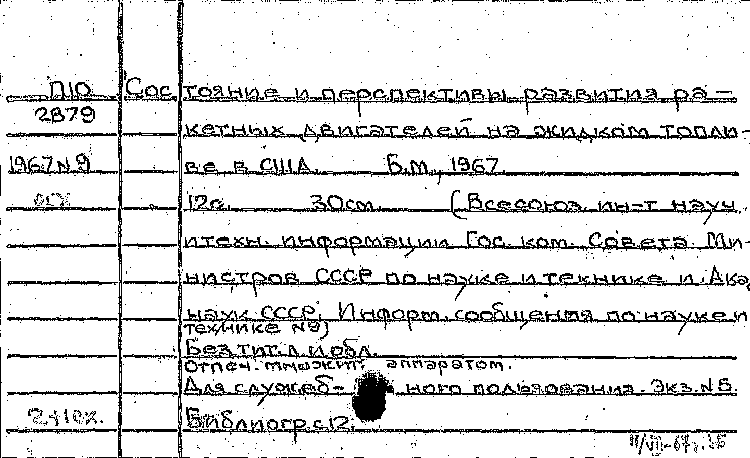 П10 Состояние и перспективы развития ра-
2879
кетных двигателей на жидком топли-
1967 N 9 ве в США. Б.М., 1967.
12с. 30см. (Всесоюз. ин-т науч.
и техн. информации Гос. ком. Совета Ми-
нистров СССР по науке и технике и Акад.
наук СССР. Информ. сообщения по науке и
технике N9)
Без тит. л. и обл.
Отпеч. множит. аппаратом.
Для служеб- ного пользования. Экз. N 5.
Библиогр. с 12.